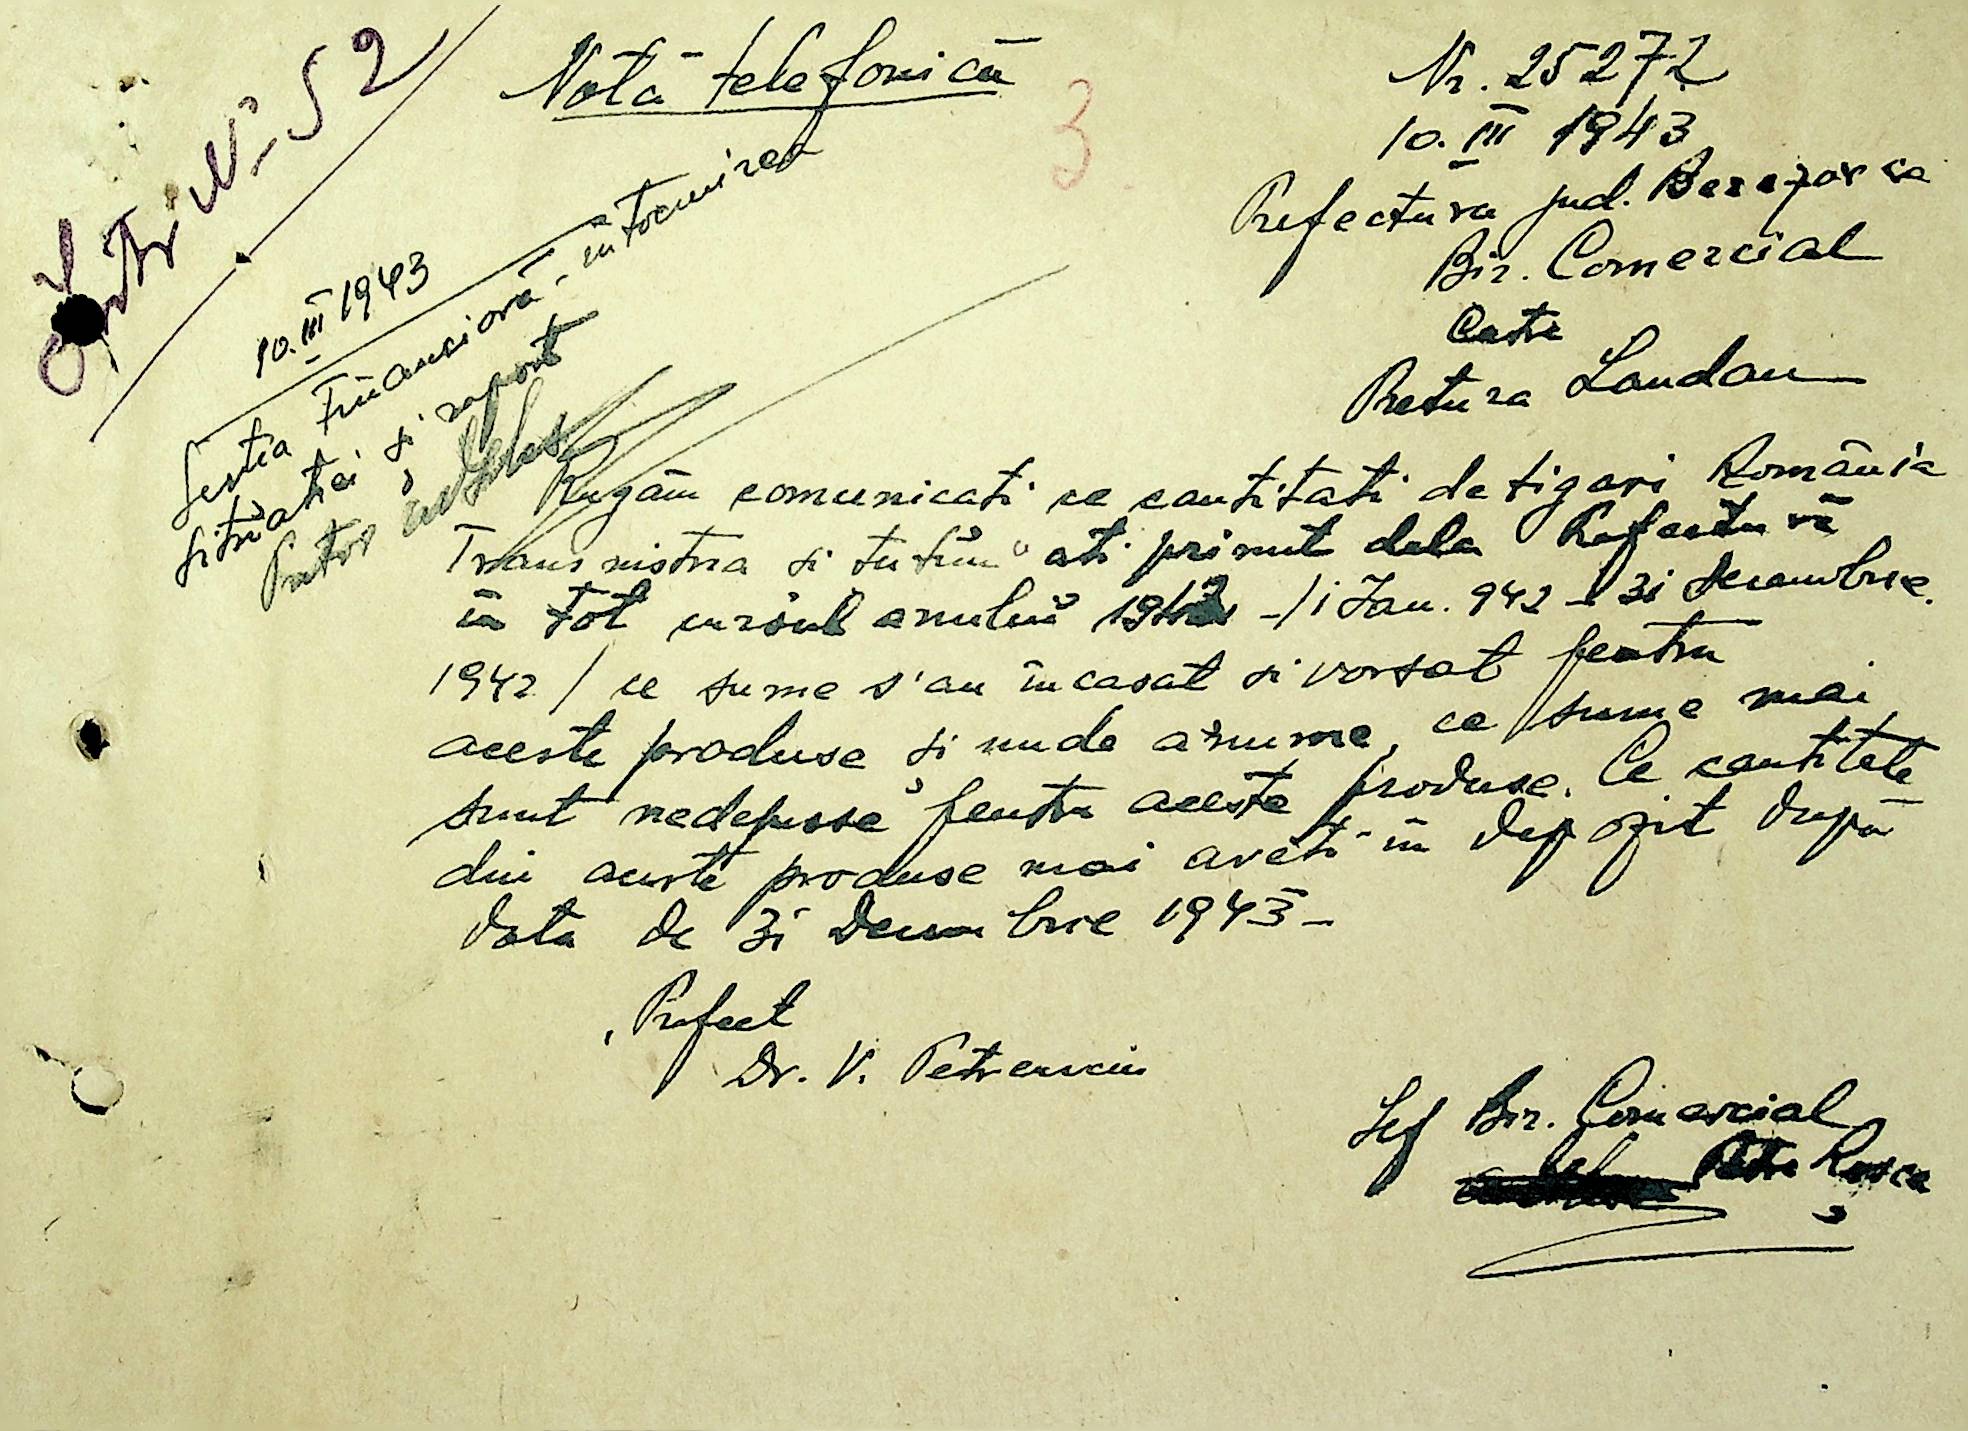 Notă telefonică
Nr. 25272
3
10. III 1943
Prefectura jud. Berezovca
Bir. Comercial
Catre
Pretura Landau
No 52
10. III 1943
Sectia Financiară, întocmirea
situatiei și raport
Pretor
Rugăm comunicati ce cantitati de tigari România
Transnistria si tutun ati primit dela Prefectură
în tot cursul anului 1942 - / 1 Ian. 942 - 31 Decembrie
1942 / ce sume s'au încasat si vorsat pentru
aceste produse și unde anume, ce sume mai
sunt nedepuse pentru aceste produse. Ce cantitate
din aceste produse mai aveti în depozit după
data de 31 Decembrie 1943 -
Prefect
Dr. V.
Șef Bir. Comercial
Petru Rusca